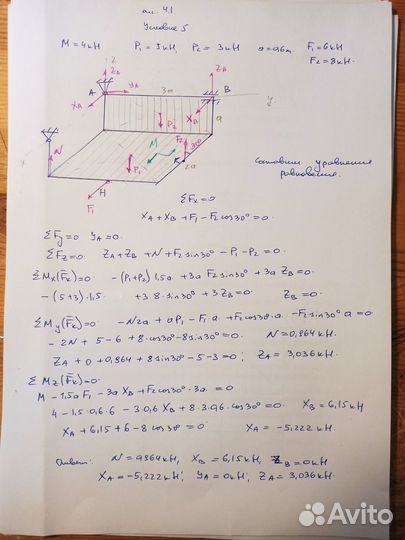 Условие 5
M = 4кН P₁ = 5кН P₂ = 3кН a = 0,6м F₁ = 6кН
F₂ = 8кН
z
Z_B Z_A
A Y_A 3a B y
X_A X_B a
N M P₂ F₂ 30°
P₁ K 2a
H
F₁
Составим уравнения
равновесия.
ΣFx = 0
X_A + X_B + F₁ - F₂ cos30° = 0
ΣFy = 0 Y_A = 0
ΣFz = 0 Z_A + Z_B + N + F₂ sin30° - P₁ - P₂ = 0
ΣMx(F̄k) = 0 -(P₁+P₂) 1,5a + 3a F₂ sin30° + 3a Z_B = 0
-(5+3)·1,5 + 3·8·sin30° + 3Z_B = 0 Z_B = 0
ΣMy(F̄k) = 0 -N2a + aP₁ - F₁·a + F₂cos30°·a - F₂ sin30° a = 0
-2N + 5 - 6 + 8·cos30° - 8sin30° = 0 N = 0,964 кН
Z_A + 0 + 0,964 + 8sin30° - 5 - 3 = 0; Z_A = 3,036 кН
ΣMz(F̄k) = 0
M - 1,5a F₁ - 3a X_B + F₂ cos30°·3a = 0
4 - 1,5·0,6·6 - 3·0,6 X_B + 8·3·0,6·cos30° = 0 X_B = 6,15 кН
X_A + 6,15 + 6 - 8 cos30° = 0 X_A = -5,222 кН
Ответ: N = 0,964 кН, X_B = 6,15 кН, Z_B = 0кН
X_A = -5,222 кН; Y_A = 0кН; Z_A = 3,036 кН
Avito